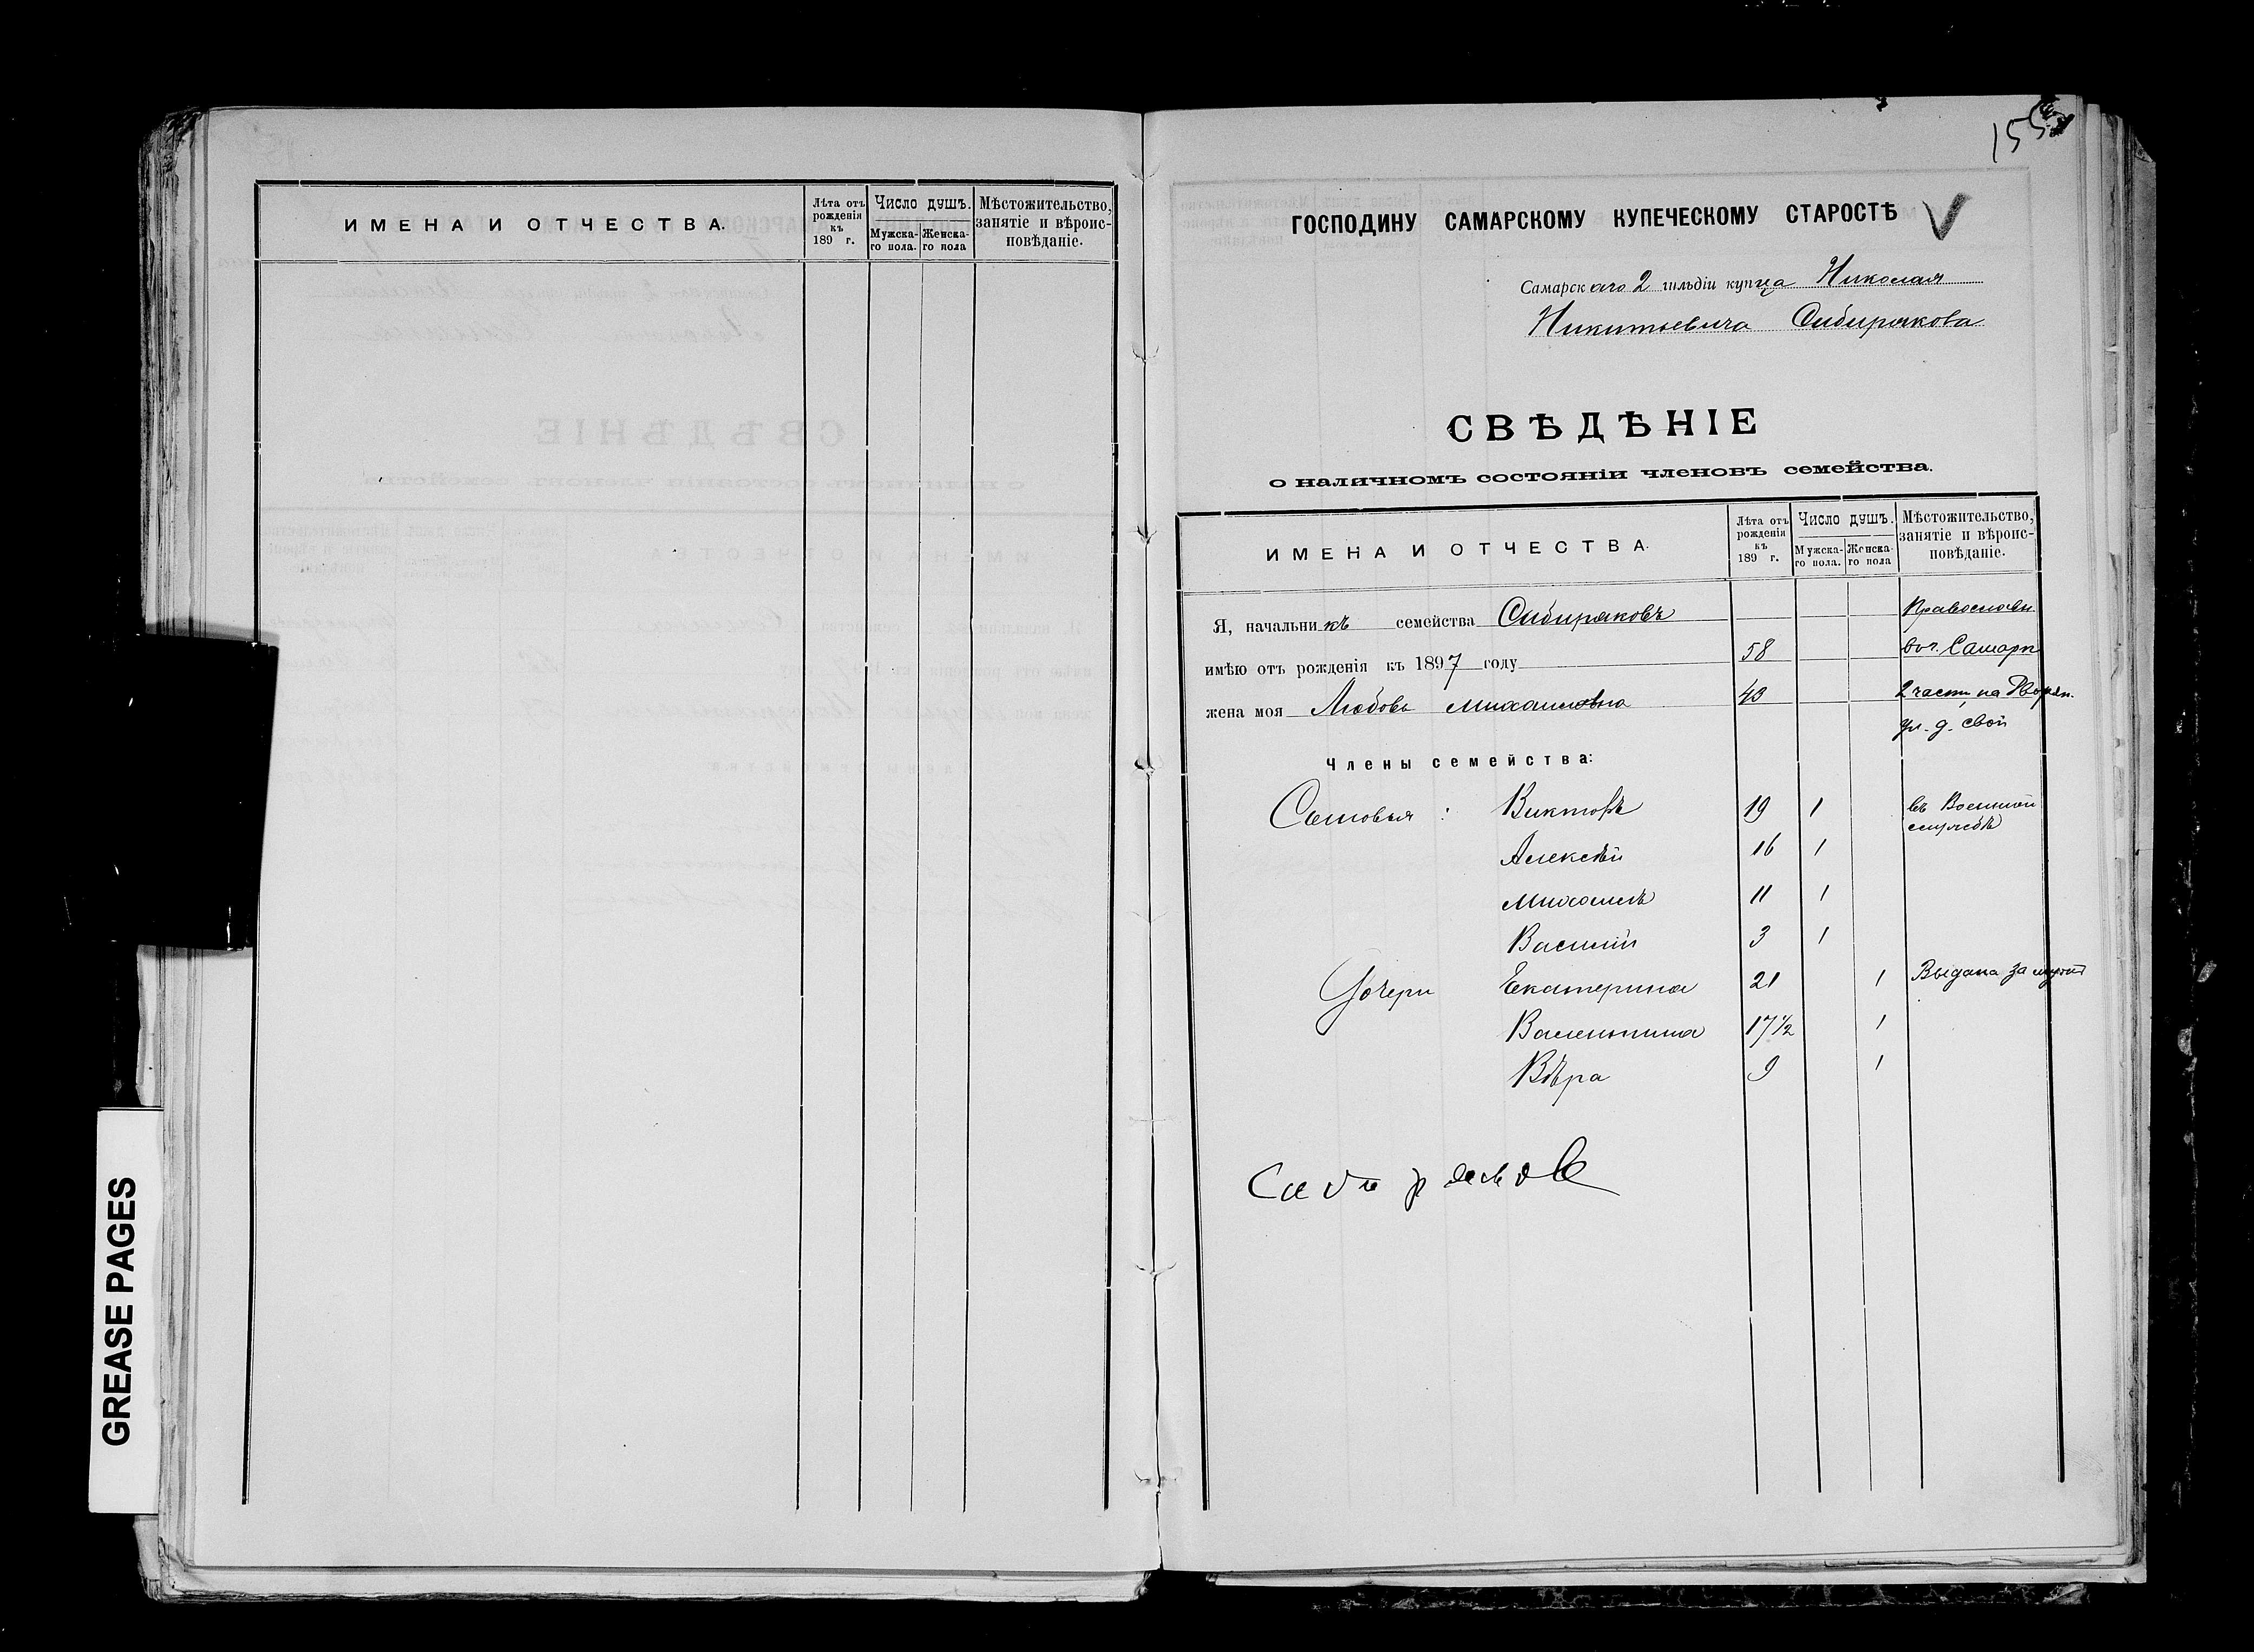 ИМЕНА И ОТЧЕСТВА.
Лѣта отъ рожденія къ 189 г.
Число душъ.
Мужска-го пола.
Женска-го пола
Мѣстожительство, занятіе и вѣроис-повѣданіе.
155
ГОСПОДИНУ САМАРСКОМУ КУПЕЧЕСКОМУ СТАРОСТѢ V
Самарскаго 2 гильдіи купца Николая
Никитьевича Сибирякова
СВѢДѢНІЕ
о наличномъ состояніи членовъ семейства.
ИМЕНА И ОТЧЕСТВА.
Лѣта отъ рожденія къ 189 г.
Число душъ.
Мужска-го пола.
Женска-го пола
Мѣстожительство, занятіе и вѣроис-повѣданіе.
Я, начальникъ семейства Сибиряковъ Православн
имѣю отъ рожденія къ 1897 году 58 во г. Самарѣ
жена моя Любовь Михаиловна 43 2 части на Дворян.
ул. д. свой
Члены семейства:
Сыновья: Викторъ 19 1 въ Военной
службѣ
Алексѣй 16 1
Михаилъ 11 1
Василій 3 1
Дочери Екатерина 21 1 Выдана за мужъ
Валентина 17½ 1
Вѣра 9 1
Сибиряков
GREASE PAGES